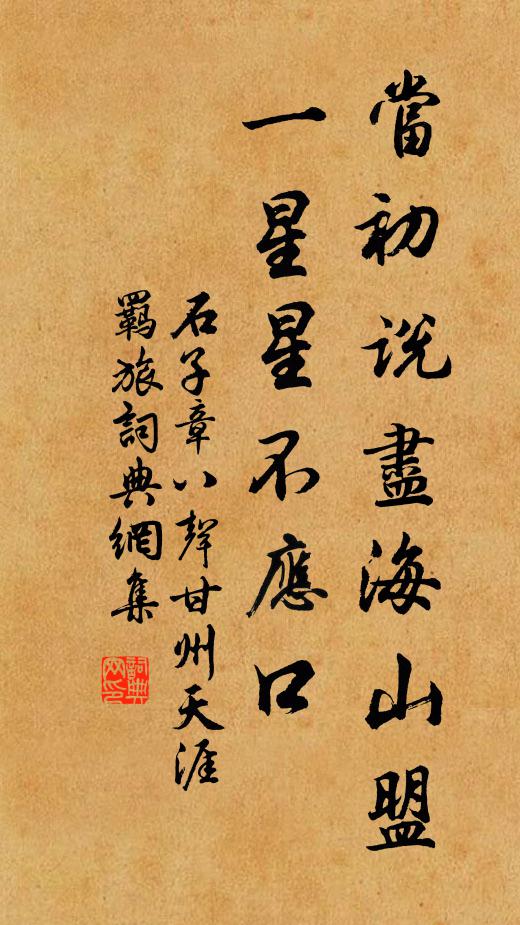 當初說盡海山盟
一星星不應口
石子章八聲甘州天涯
羈旅詞典網集
詞典
网印